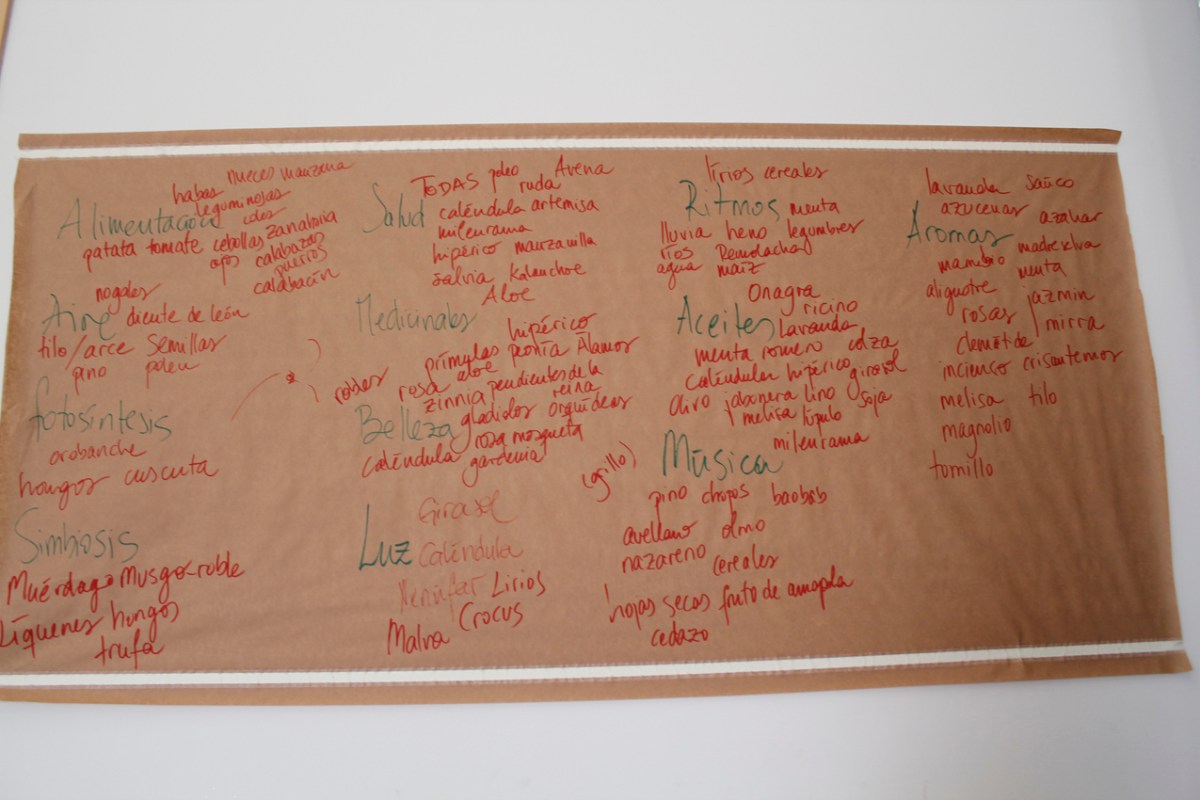 nueces manzana
habas
leguminosas
Alimentación coles
patata tomate cebollas zanahoria
ajos calabazas
puerros
calabacín
nogales
Aire diente de león
tilo/arce semillas
pino polen
fotosíntesis
orobanche
hongos cuscuta
Simbiosis
Muérdago Musgo-roble
Líquenes hongos
trufa
TODAS poleo Avena
ruda
Salud caléndula artemisa
milenrama
hipérico manzanilla
salvia Kalanchoe
Aloe
Medicinales
hipérico
prímulas peonía Álamos
robles rosa aloe
zinnia pendientes de la
reina
Belleza gladiolos orquídeas
rosa mosqueta
caléndula gardenia
Girasol
Luz Caléndula
Nenúfar Lirios
Crocus
Malva
lirios cereales
Ritmos menta
lluvia heno legumbres
ríos Remolacha
agua maíz
Onagra
ricino
Aceites lavanda
menta romero colza
Caléndula hipérico girasol
Olivo jabonera lino soja
melisa lúpulo
milenrama
(grillo) Música
pino chopos baobab
avellano olmo
nazareno
cereales
hojas secas fruto de amapola
cedazo
lavanda saúco
azucenas azahar
Aromas madreselva
menta
aligustre
rosas jazmín
mirra
clemátide
incienso crisantemos
melisa tilo
magnolio
tomillo